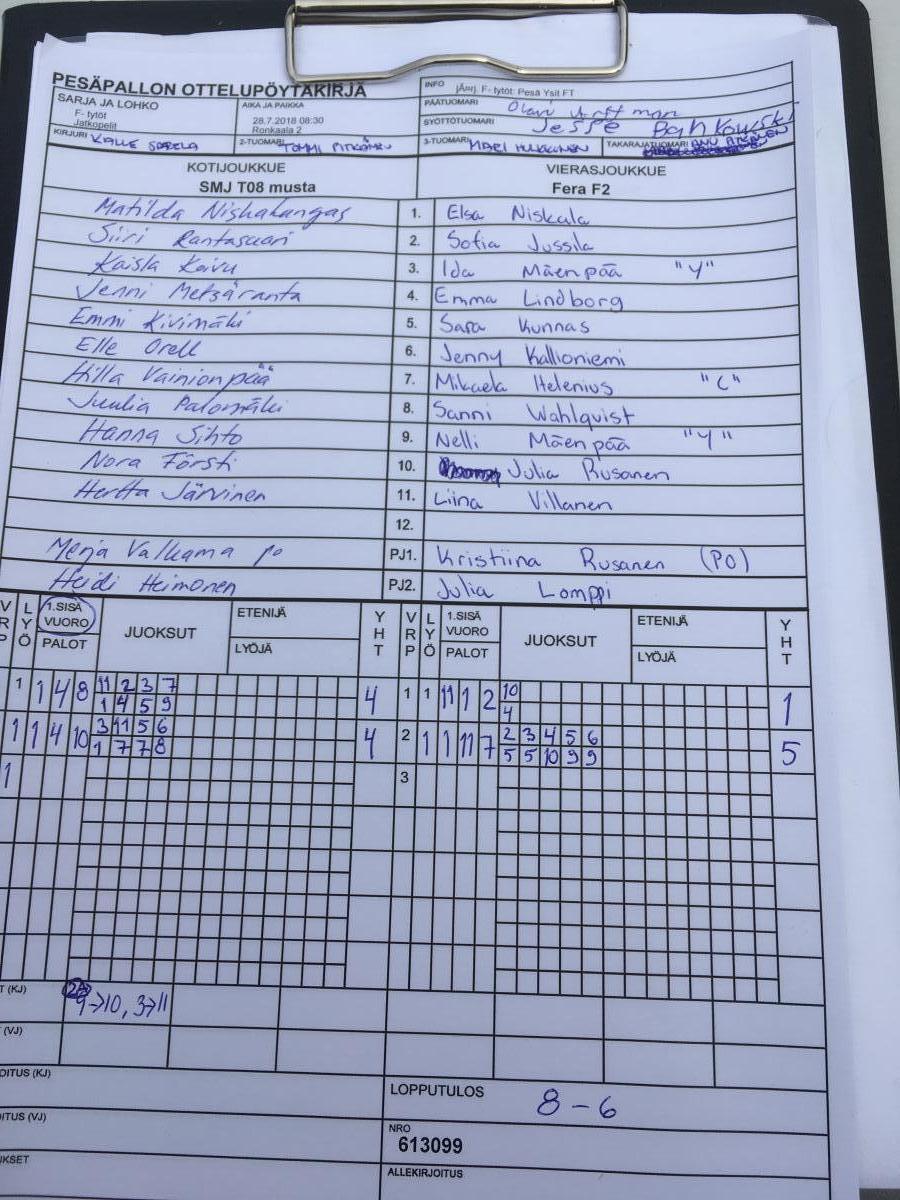 PESÄPALLON OTTELUPÖYTÄKIRJA
INFO jÄrrj. F- tytöt: Pesä Ysit FT
SARJA JA LOHKO
F- tytöt
Jatkopelit
AIKA JA PAIKKA
28.7.2018 08:30
Ronkaala 2
PÄÄTUOMARI
SYÖTTÖTUOMARI Jesse
KIRJURI KALLE
2-TUOMARI TOMMI
3-TUOMARI MARI
TAKARAJATUOMARI ANU
KOTIJOUKKUE
SMJ T08 musta
VIERASJOUKKUE
Fera F2
Matilda Nishakangas 1. Elsa Niskala
Siiri Rantasaari 2. Sofia Jussila
Kaisla Koivu 3. Ida Mäenpää "Y"
Jenni Metsäranta 4. Emma Lindborg
Emmi Kivimäki 5. Sara Kunnas
Elle Orell 6. Jenny Kallioniemi
Hilla Vainionpää 7. Mikaela Helenius "C"
Juulia Palomäki 8. Sanni Wahlqvist
Hanna Sihto 9. Nelli Mäenpää "Y"
Nora Försti 10. Julia Rusanen
Hertta Järvinen 11. Liina Villanen
12.
Merja Valkama po PJ1. Kristiina Rusanen (PO)
Heidi Heimonen PJ2. Julia Lomppi
VRP LYÖ 1.SISÄ VUORO PALOT JUOKSUT ETENIJÄ LYÖJÄ YHT VRP LYÖ 1.SISÄ VUORO PALOT JUOKSUT ETENIJÄ LYÖJÄ YHT
1 1 4 8 11 2 3 7 4 1 1 11 1 2 10 1
1 4 5 9 4
1 1 4 10 3 11 5 6 4 2 1 1 11 7 2 3 4 5 6 5
1 7 7 8 5 5 10 9 9
1 3
T (KJ) 9→10, 3→11
(VJ)
OITUS (KJ)
LOPPUTULOS 8 - 6
OITUS (VJ)
NRO
613099
UKSET
ALLEKIRJOITUS